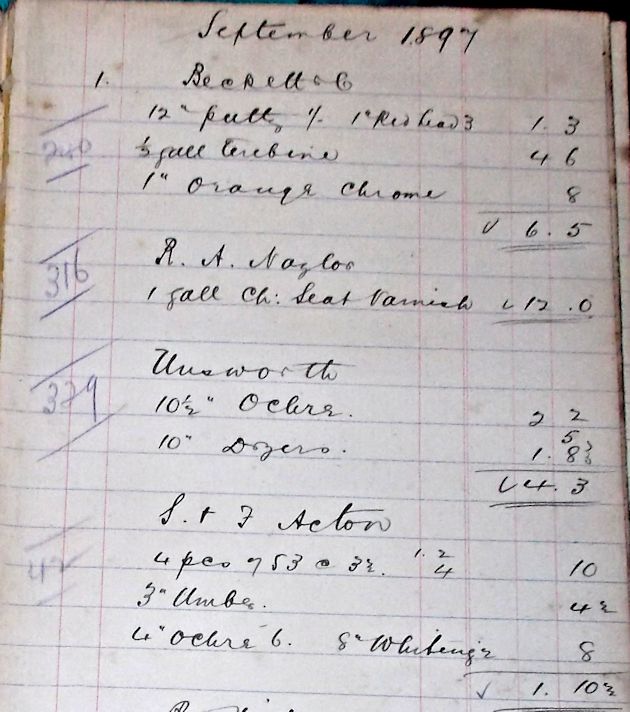 September 1897
1. Beckett & Co
12" putty 1/- 1" Red lead 3 1. 3
½ gall terebine 4 6
1" Orange Chrome 8
6. 5
316 R. A. Naylor
1 gall Ch: Seat Varnish 12. 0
379 Unsworth
10½" Ochre. 2 2
10" 1. 8
4. 3
S. & F Acton
47 4 pcs 953 @ 3½. 1.2 4 10
3" Umber. 4½
4" Ochre 6. 8" Whitening 2 8
1. 10½